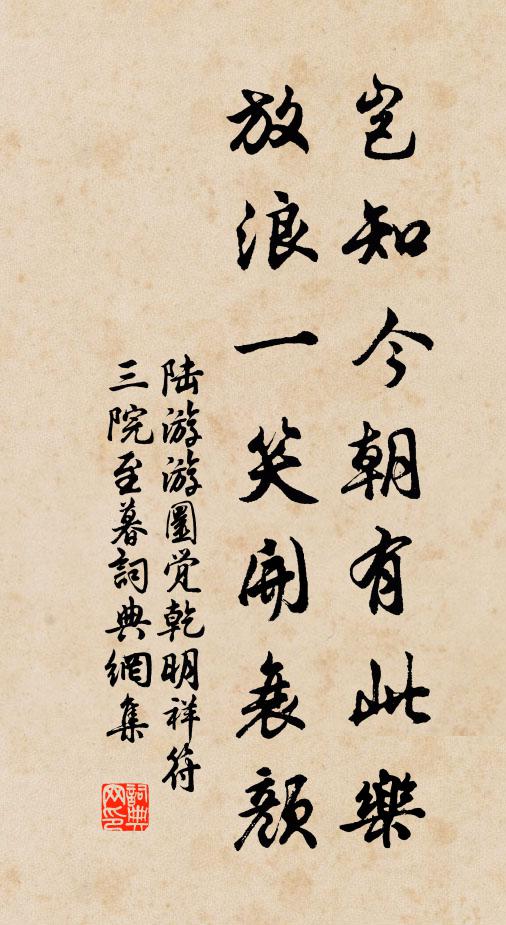 岂知今朝有此樂
放浪一笑開衰顏
陆游游圜觉乾明祥符
三院至暮詞典網集
詞典網印